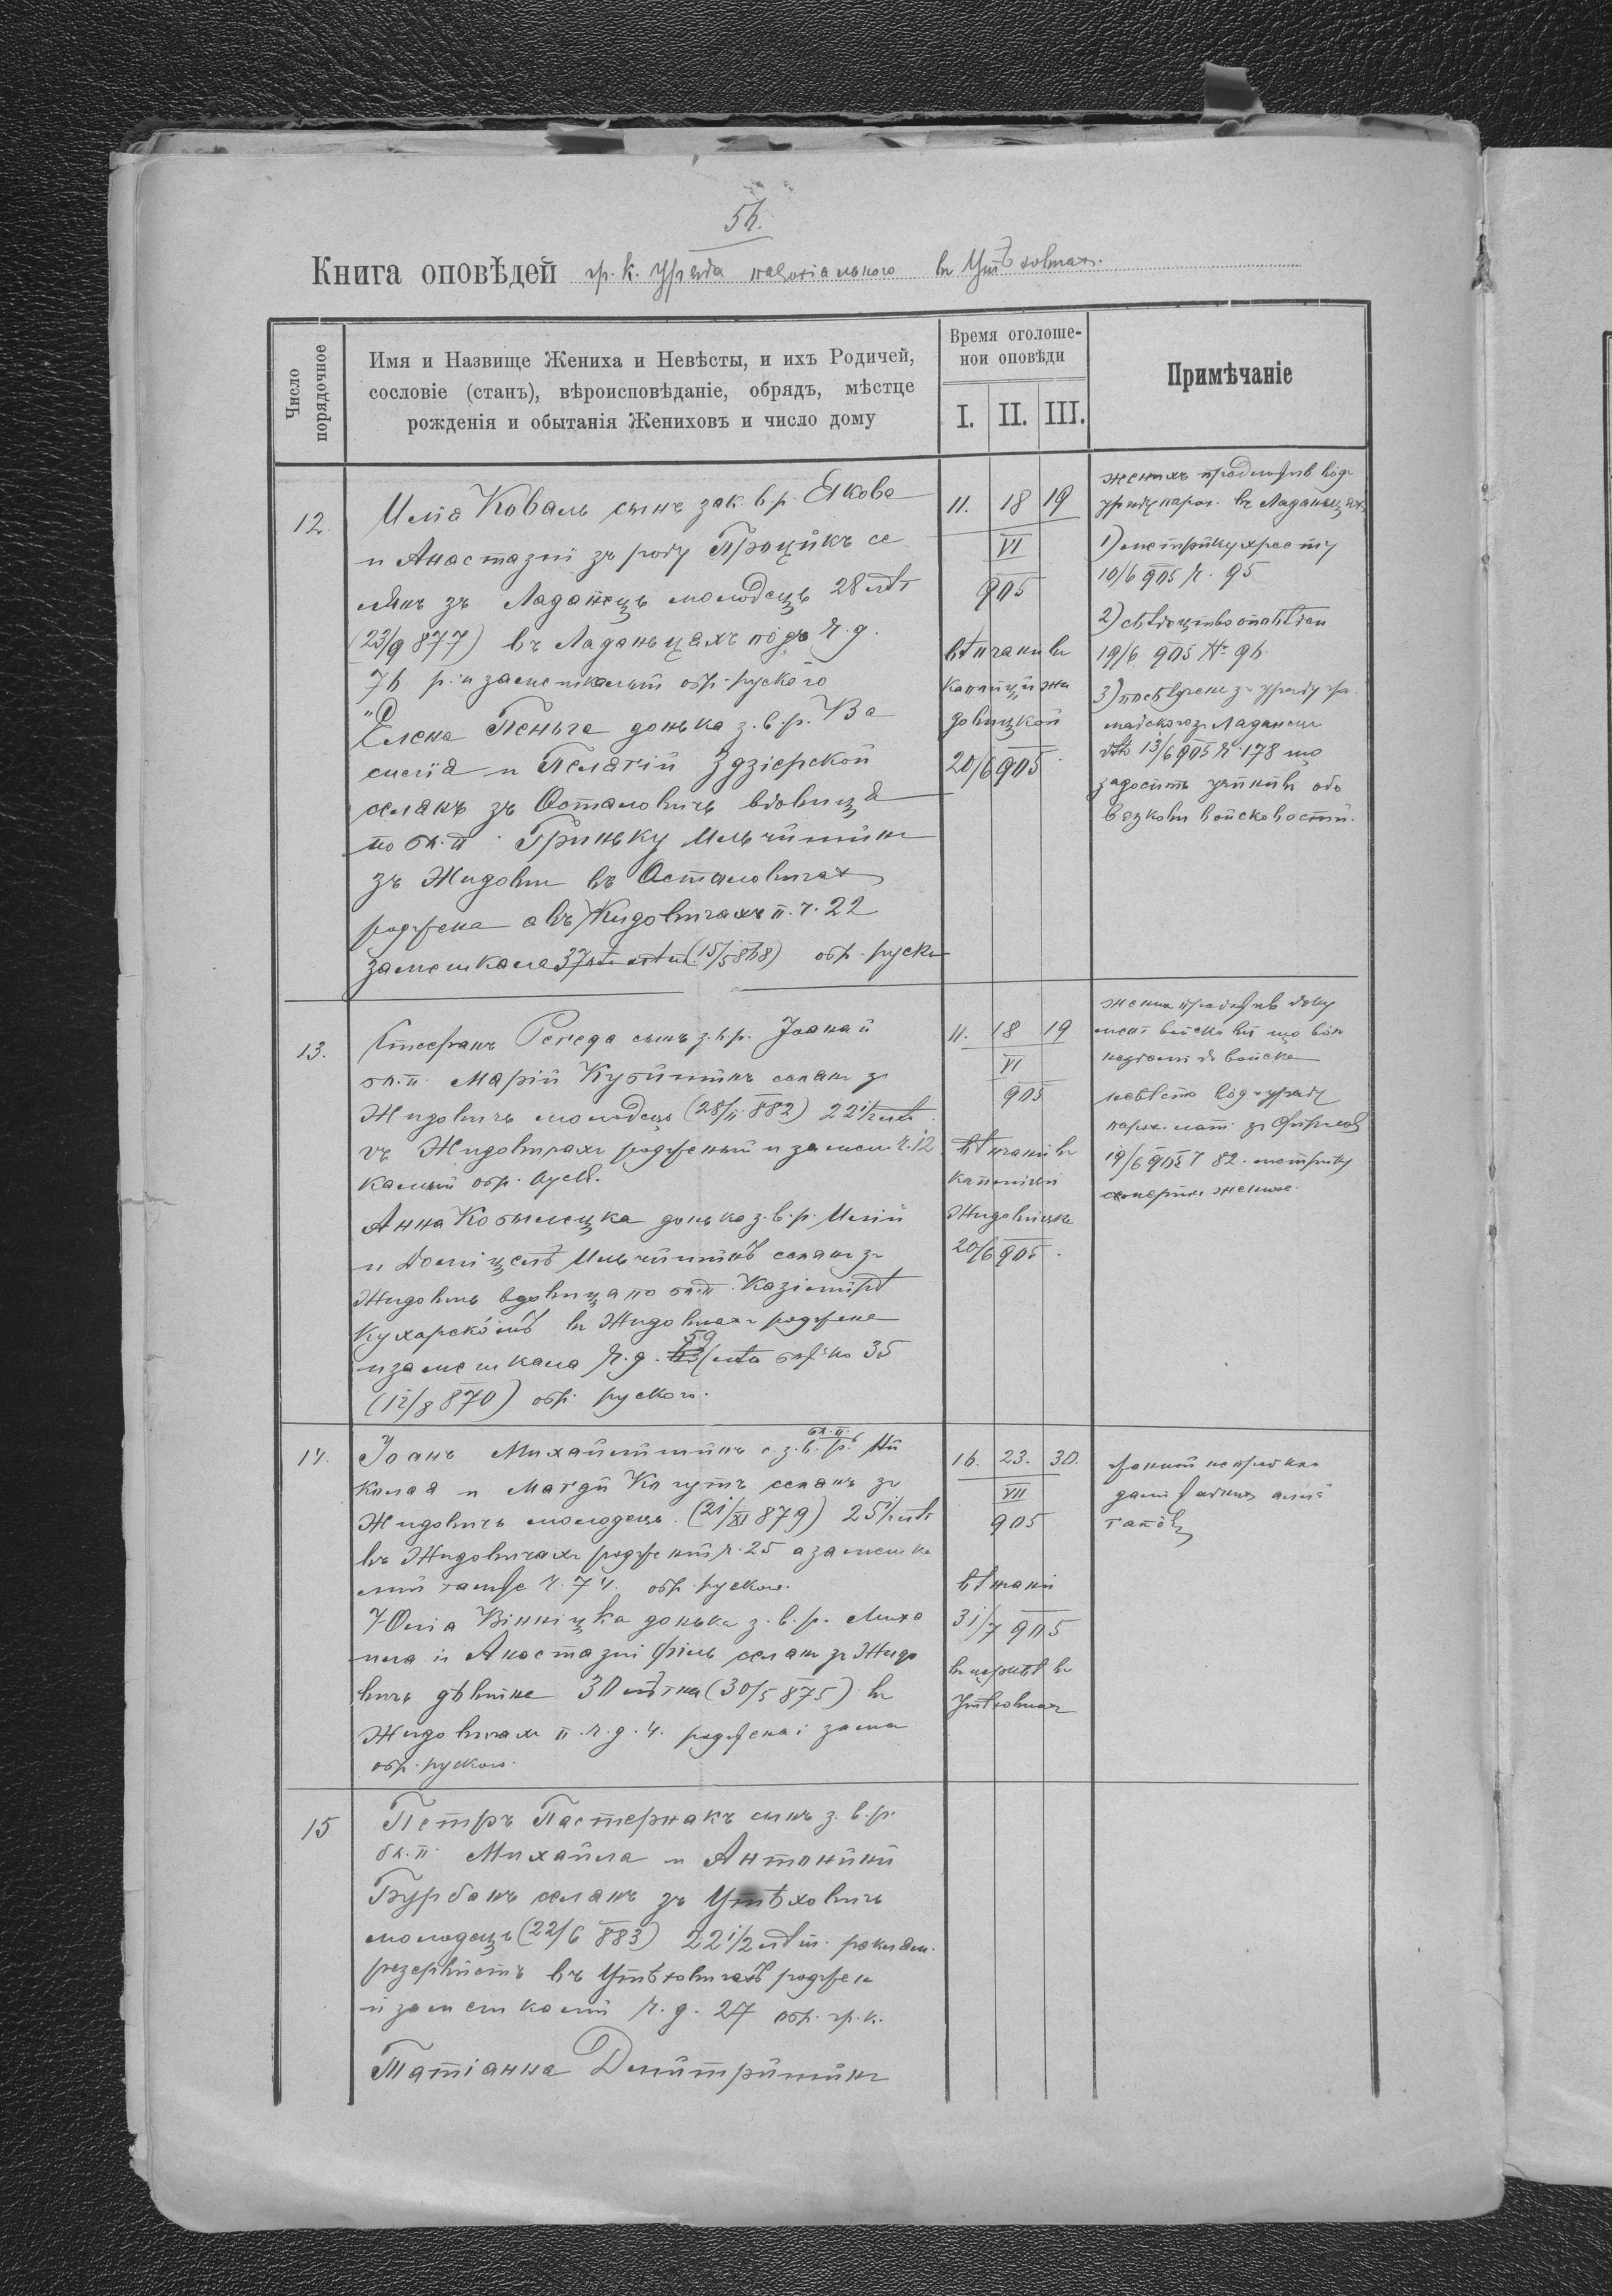 54.
Книга оповѣдей гр. к. уряда парохіального въ Утѣховичах.
Число порядочное
Имя и Назвище Жениха и Невѣсты, и ихъ Родичей,
сословіе (станъ), вѣроисповѣданіе, обрядъ, мѣстце
рожденія и обытанія Жениховъ и число дому
Время оголоше-
нои оповѣди
I. II. III.
Примѣчаніе
12.
Илія Коваль сынъ зак. в. р. Якова
и Анастазіи зъ роду Процикъ се
лянъ зъ Ладанець молодець 28 лѣт
(23/9 877) въ Ладаньцяхъ подъ ч. д.
76 р. и замешкалый обр. руского
Елена Пеньга донька з. в. р. Ва
силія и Пелагіи Здзіерской
селянъ зъ Осталовичь вдовиця
по бл. п. Гриньку Ильчишинъ
зъ Жидович въ Осталовичах
роджена а въ Жидовичахъ п. ч. 22
замешкала 37 лѣтъ (15/5 868) обр. руск.
11. 18 19
VI
905
вѣнчани въ
каплици жи
довицкой
20/6 905
жених предложив вôд
уряду парох. въ Ладаньцях
1) метрику хресту
10/6 905 ч. 95
2) свѣдоцтво оповѣдей
19/6 905 № 96.
3) посвѣдченє з уряду гро
мадского з Ладанець
дто 13/6 905 ч. 178 що
задосить учинив обо
вязкови войсковости.
13.
Стефанъ Репеда сынъ з. в. р. Іоана и
бл. п. Маріи Кубишинъ селян зъ
Жидовичъ молодець (28/11 882) 22 1/2 лѣт
въ Жидовичахъ родженый и замеш ч. 12
калый обр. руск.
Анна Кобылецка донька з. в. р. Иліи
и Доміцелѣ Ильчишинъ селян зъ
Жидович вдовица по бл. п. Казімирѣ
Кухарскôмъ въ Жидовичах роджена
и замешкала ч. д. 59 лѣта 35
(12/8 870) обр. руского.
11. 18 19
VI
905
вѣнчани въ
каплици
Жидовицкой
20/6 905.
жених предложив доку
мент войсковый що вôн
до войска
вôд уряду
парох. лат. з Фирлеєв
19/6 905 ч 82. метрику
смерти
14.
Іоанъ Михайлишинъ с. з. в. р. бл. п. Ни
колая и Магди Когутъ селянъ зъ
Жидовичъ молодець. (21/XI 879) 25 1/2 лѣт
въ Жидовичах роджений ч. 25 а замешка
лий тамже ч. 74. обр. руского.
Юлія Вінніцка донька з. в. р. Миха
ила и Анастазіи Філь селян зъ Жидо
вичь дѣвиця 30 лѣтна (30/5 875) въ
Жидовичах п. ч. д. 4. роджена и зам.
обр. руского.
16. 23. 30.
VII
905
вѣнчани
31/7 905
въ церквѣ въ
Утѣховичах
15
Петръ Пастернакъ сынъ з. в. р.
бл. п. Михаила и Антонини
Бурбанъ селянъ зъ Утѣховичь
молодець (22/6 883) 22 1/2 лѣт.
резервистъ въ Утѣховичахъ роджен
и замешкалий ч. д. 27 обр. гр. к.
Татіанна Димитришинъ